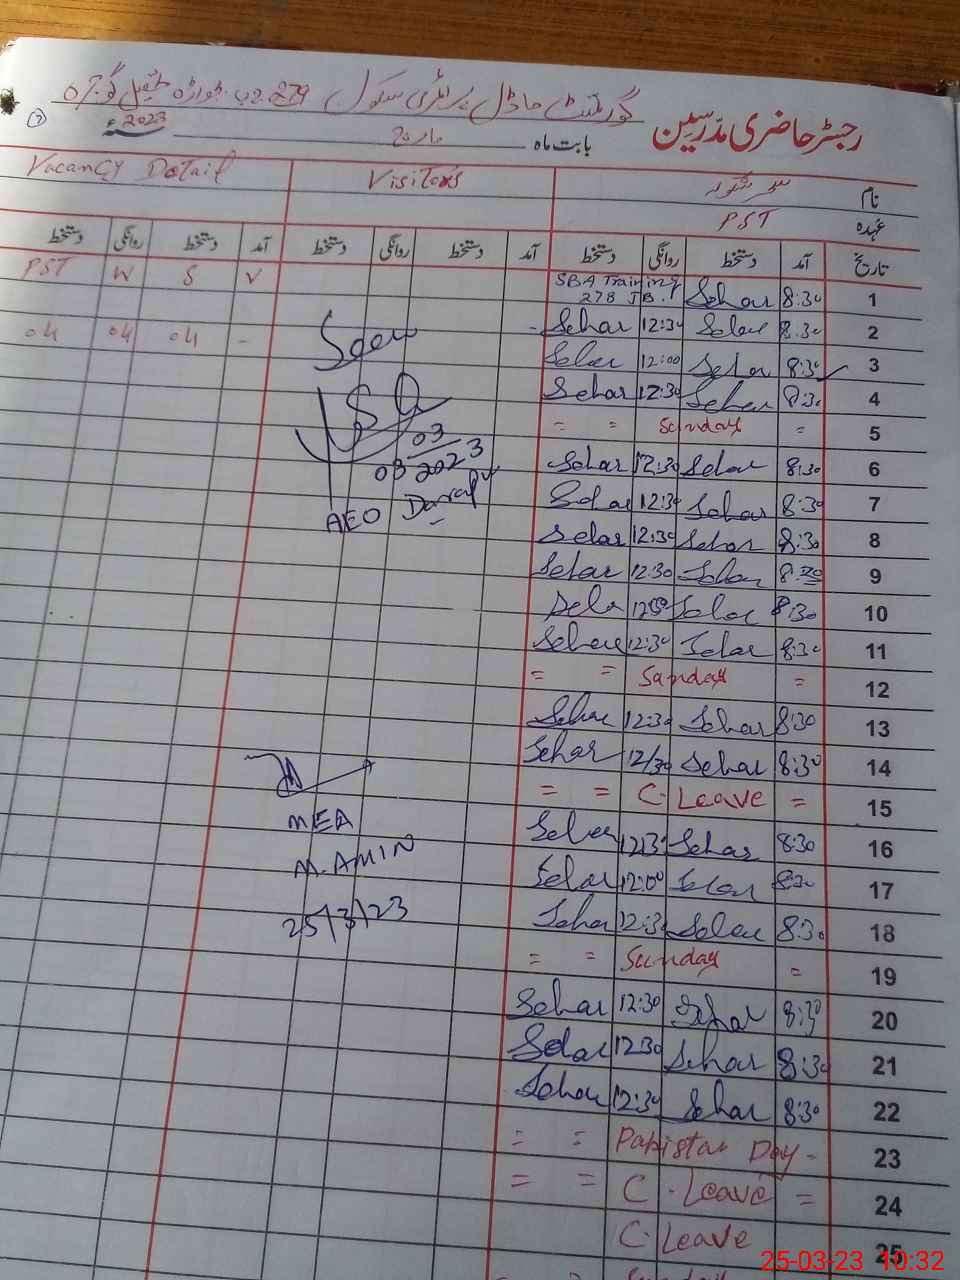 رجسٹر حاضری مدرسین گورنمنٹ ماڈل پرائمری سکول 279 ج.ب
بابت ماہ مارچ 2023ء
Vacancy Detail Visitors
نام
PST عہدہ
تاریخ آمد دستخط روانگی دستخط آمد دستخط روانگی دستخط آمد دستخط روانگی دستخط
PST W S V
SBA Training 278 JB. Sehar 8:30 1
04 04 04 - Seen
Sehar 12:30 Sehar 8:30 2
Sehar 12:00 Sehar 8:30 3
Sehar 12:30 Sehar 8:30 4
= = Sunday = 5
03
03 2023
AEO
Sehar 12:30 Sehar 8:30 6
Sehar 12:30 Sehar 8:30 7
Sehar 12:30 Sehar 8:30 8
Sehar 12:30 Sehar 8:30 9
Sehar Sehar 8:30 10
Sehar 12:30 Sehar 8:30 11
= = Sunday = 12
Sehar 12:30 Sehar 8:30 13
Sehar 12/30 Sehar 8:30 14
= = C. Leave = 15
MEA
M.AMIN
25/3/23
Sehar 12:30 Sehar 8:30 16
Sehar 12:00 Sehar 8:30 17
Sehar 12:30 Sehar 8:30 18
= = Sunday = 19
Sehar 12:30 Sehar 8:30 20
Sehar 12:30 Sehar 8:30 21
Sehar 12:30 Sehar 8:30 22
= = Pakistan Day - 23
= = C. Leave = 24
C. Leave 25
Sunday
25-03-23 10:32